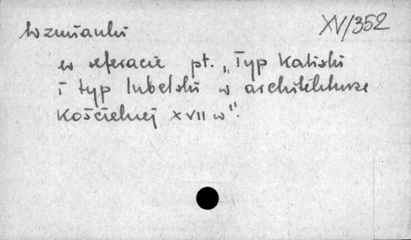 Wzmianki XV/352
w referacie pt. „Typ Kaliski
i typ lubelski w architekturze
Kościelnej XVII w".